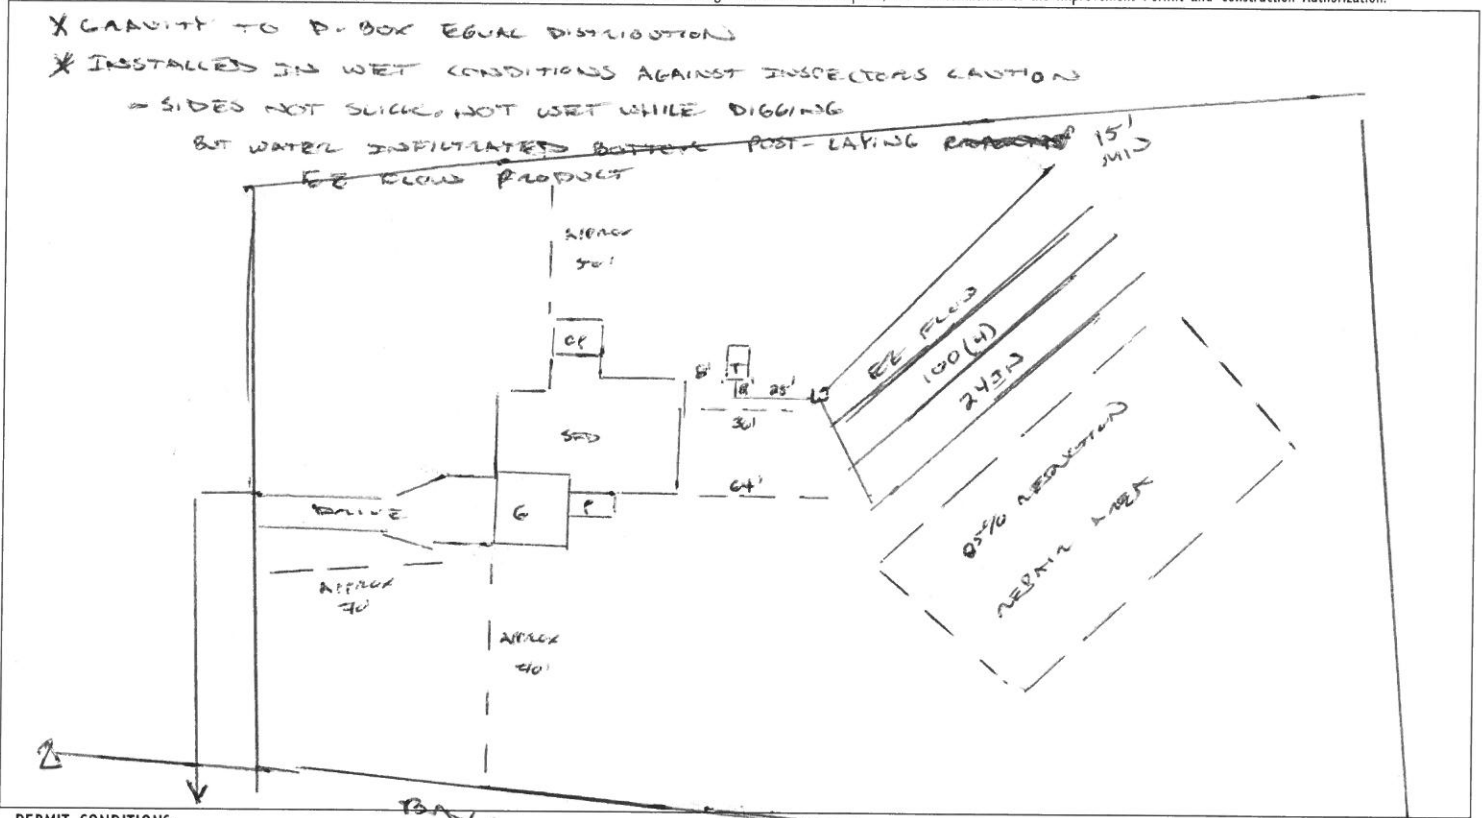 Improvement Permit and Construction Authorization.
* GRAVITY TO D-BOX EQUAL DISTRIBUTION
* INSTALLED IN WET CONDITIONS AGAINST INSPECTORS CAUTION
- SIDES NOT SLICK. NOT WET WHILE DIGGING
BUT WATER INFILTRATED BOTTOM POST-LAYING
EZ FLOW PRODUCT
15'
MIN
APPROX
50'
CP
8'
T
25'
36'
SFD
64'
EZ FLOW
100(4)
24IN
25% REDUCTION
REPAIR AREA
DRIVE
G
P
APPROX
70'
APPROX
40'
PERMIT CONDITIONS